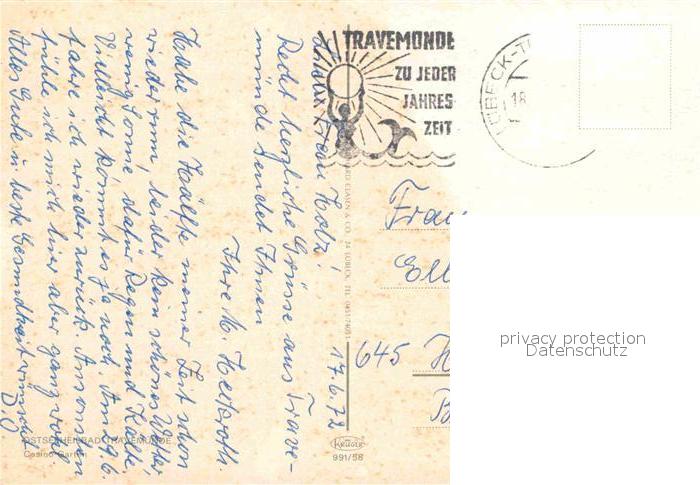 TRAVEMÜNDE
ZU JEDER
JAHRES
ZEIT
LÜBECK-T
18
17.6.72
Liebe Frau Holz!
Recht herzliche Grüsse aus Trave-
münde sendet Ihnen
Ihre M. Helferoth.
Habe die Hälfte meiner Zeit schon
wieder rum, leider kein schönes Wetter,
wenig Sonne dafür Regen und Kälte,
Vielleicht kommt es ja noch. Am 29.6.
fahre ich wieder zurück. Ansonsten
fühle ich mich hier aber ganz wohl
Alles Gute u. beste Gesundheit wünscht
D.O
Frau
Ell
645 H
CLASEN & CO. 24 LÜBECK, TEL.
KRÜGER
991/58
OSTSEEHEILBAD TRAVEMÜNDE
Casino-Garten
privacy protection
Datenschutz